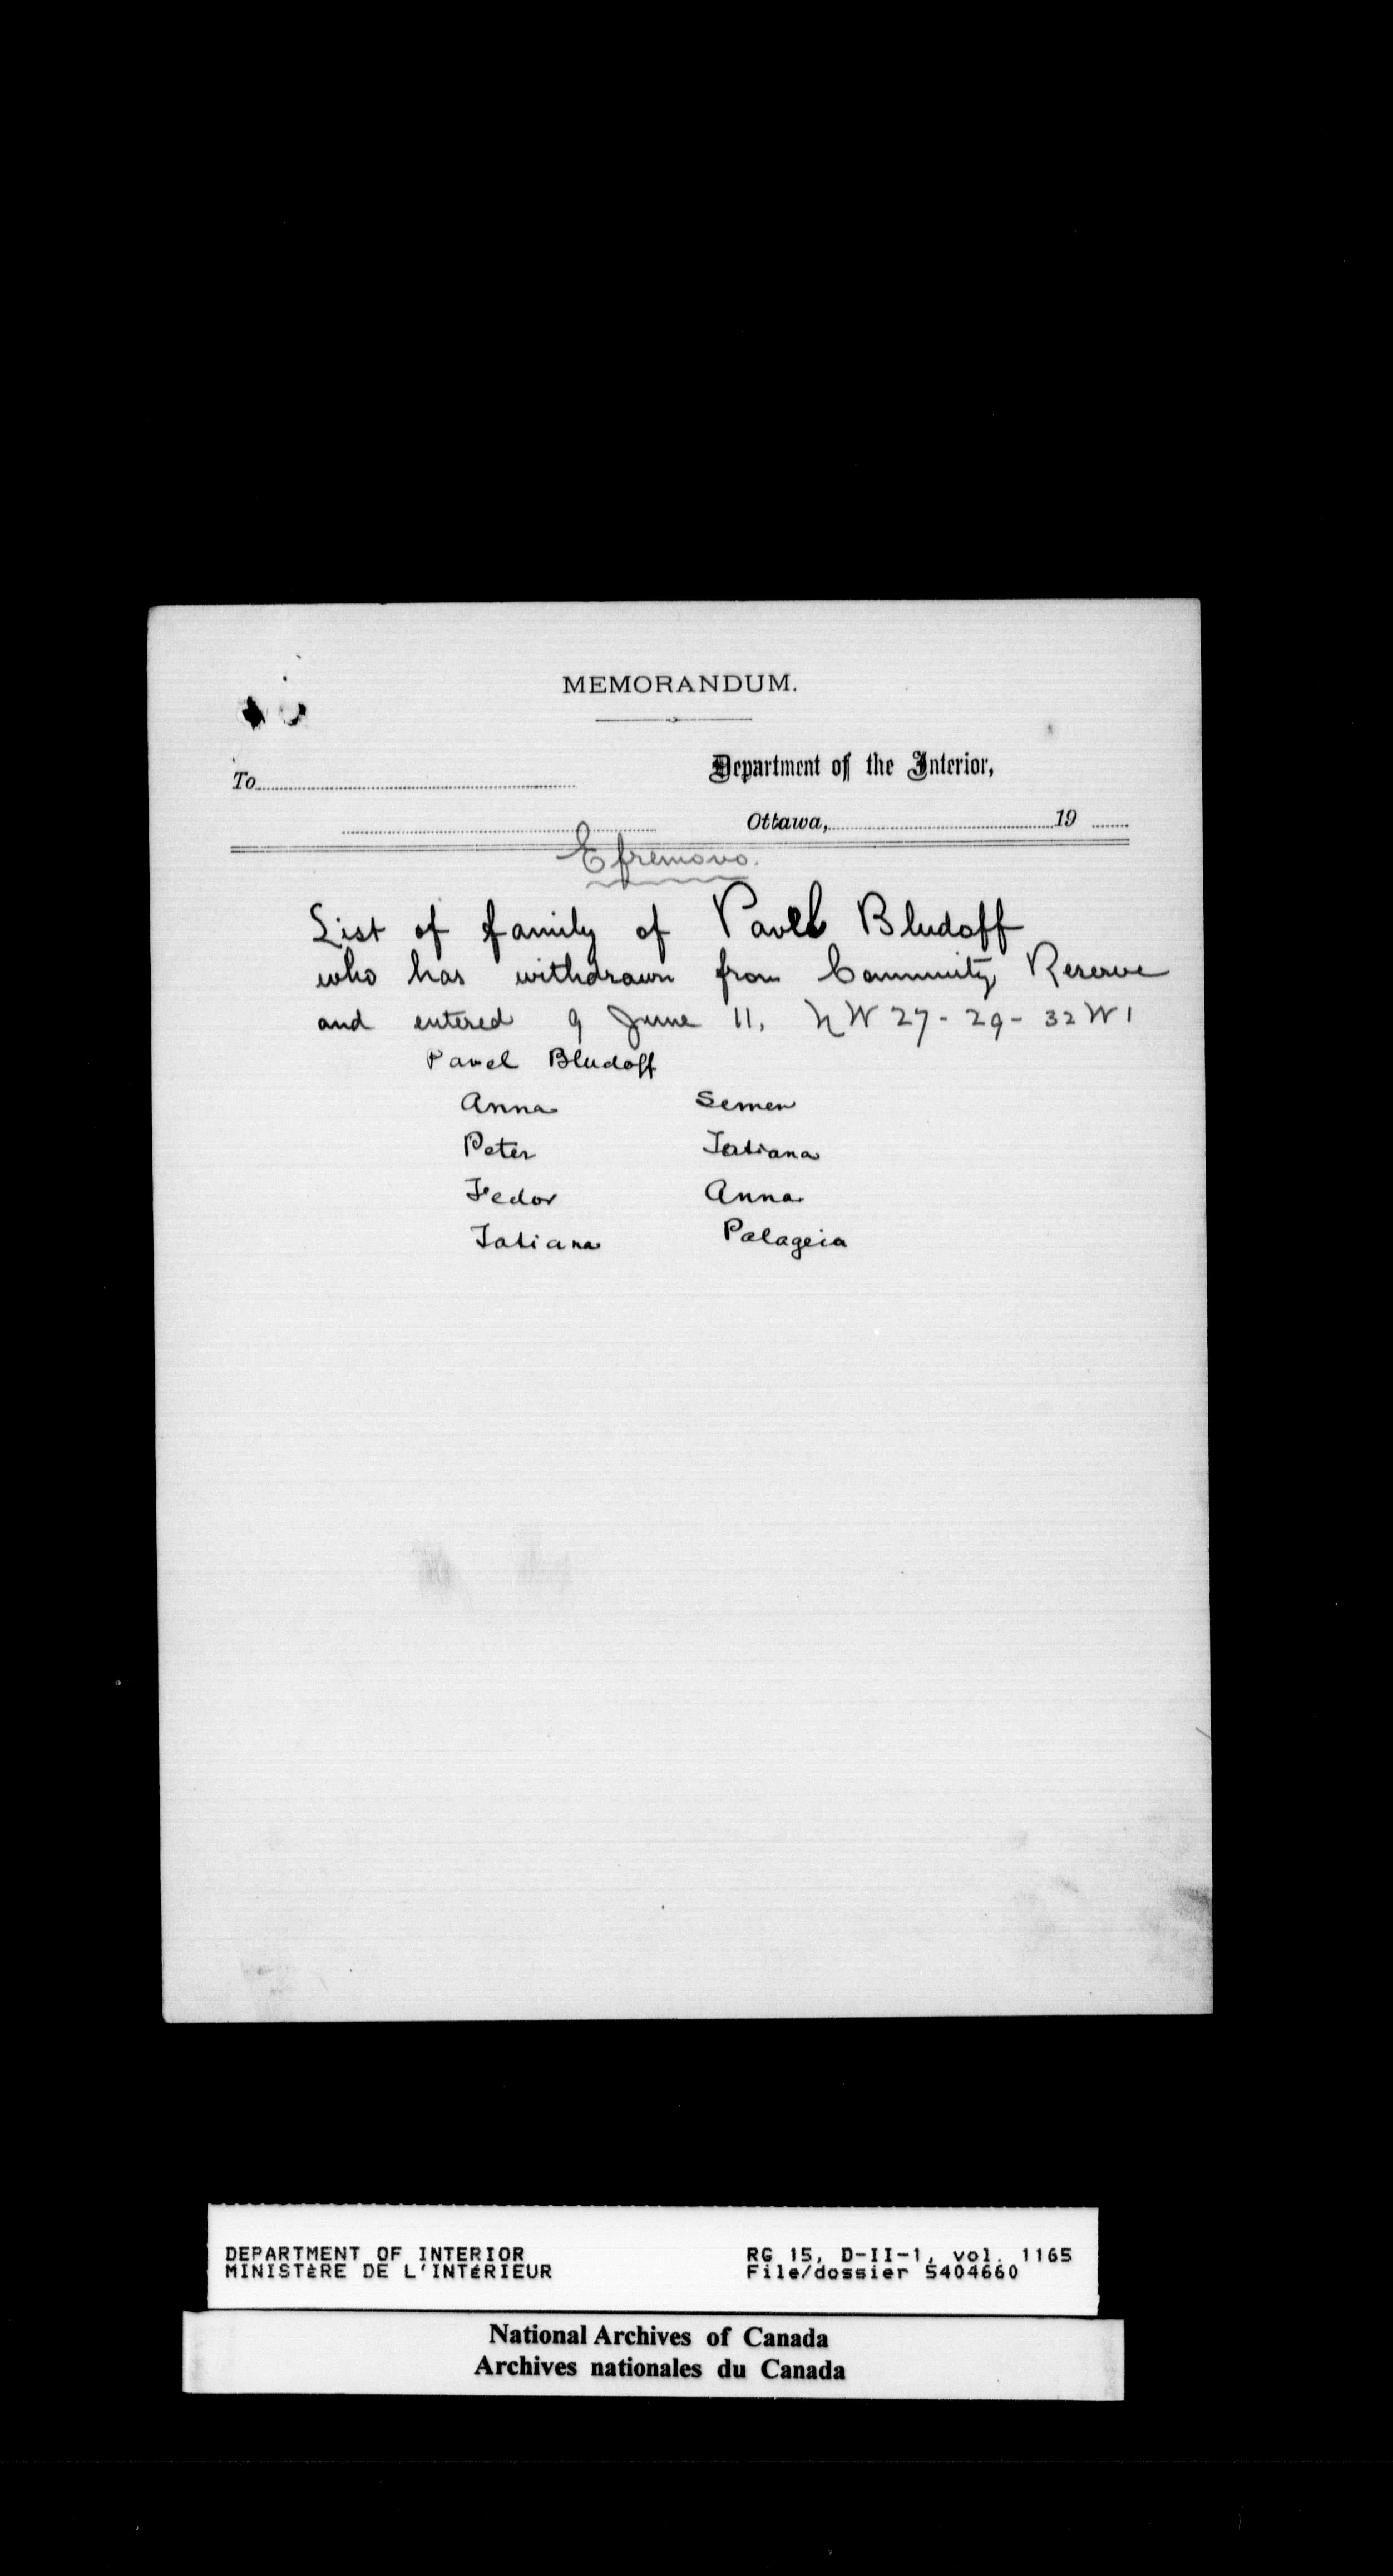 MEMORANDUM.
To
Department of the Interior,
Ottawa, 19
Efremovo.
List of family of Pavel Bludoff
who has withdrawn from Community Reserve
and entered 9 June 11, NW 27 - 29 - 32 W 1
Pavel Bludoff
Anna Semen
Peter Tatiana
Fedor Anna
Tatiana Palageia
DEPARTMENT OF INTERIOR RG 15, D-II-1, vol. 1165
MINISTÈRE DE L'INTÉRIEUR File/dossier 5404660
National Archives of Canada
Archives nationales du Canada